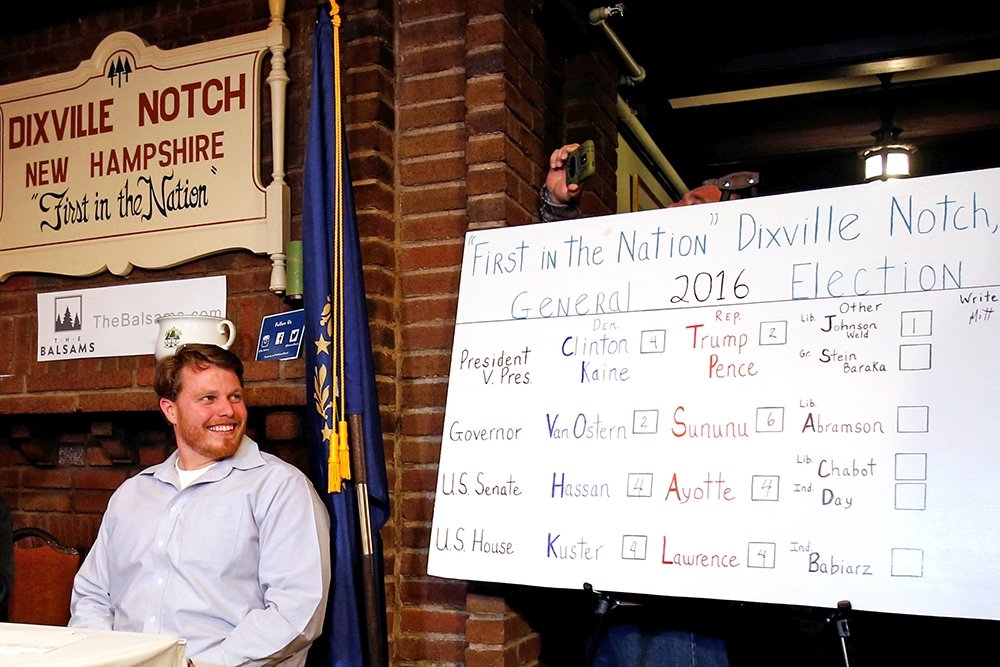 DIXVILLE NOTCH
NEW HAMPSHIRE
"First in the Nation"
TheBalsams.com
THE
BALSAMS
Follow Us
"First in the Nation" Dixville Notch,
General 2016 Election
Dem. Rep. Other Write
President Clinton 4 Trump 2 Lib. Johnson 1 Mitt
V. Pres. Kaine Pence Weld
Gr. Stein
Baraka
Governor Van Ostern 2 Sununu 6 Lib. Abramson
Lib. Chabot
U.S. Senate Hassan 4 Ayotte 4 Ind. Day
U.S. House Kuster 4 Lawrence 4 Ind. Babiarz